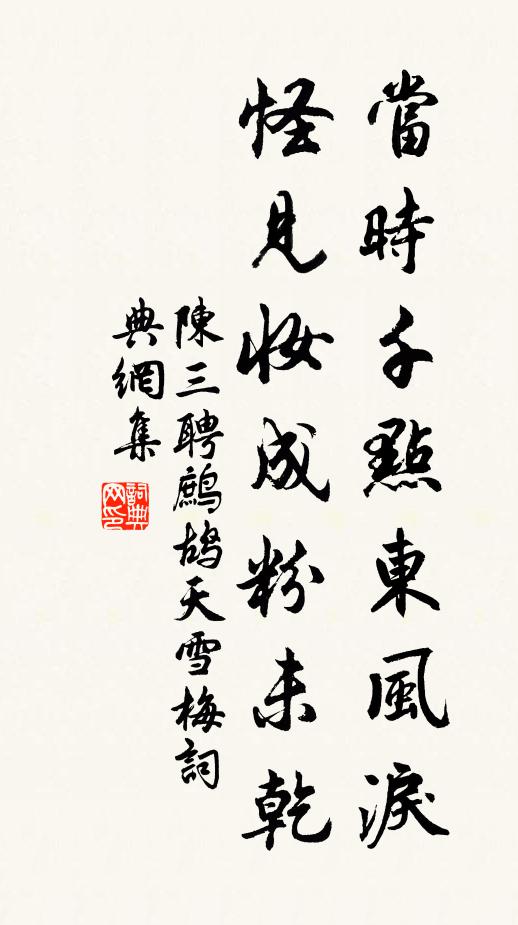 當時千點東風淚
怪見妝成粉未乾
陳三聘鷓鴣天雪梅詞
典網集
詞典网印